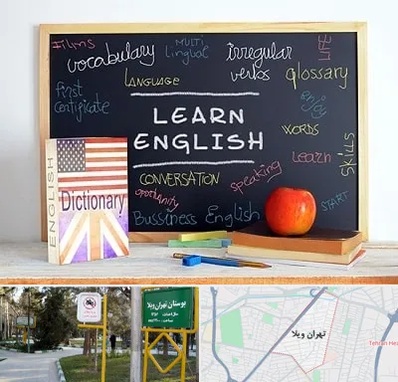 Films
vocabulary
MULTI
lingual
irregular
verbs
LIFE
glossary
LANGUAGE
First
Certificate
enjoy
LEARN
ENGLISH
WORDS
Learn
SKILLS
CONVERSATION
speaking
opportunity
START
Bussiness English
ENGLISH
Dictionary
بوستان تهران ویلا
تهران ویلا